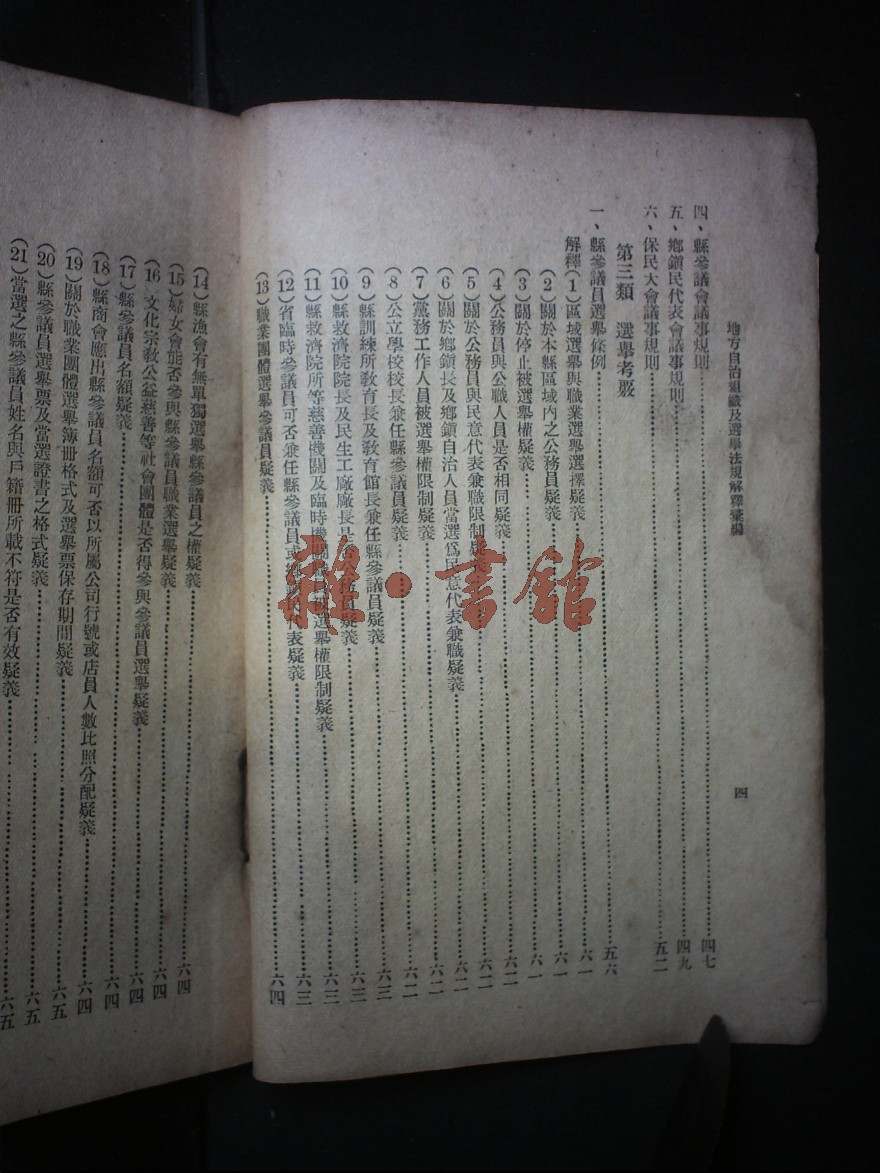 地方自治組織及選舉法規解釋彙編
四
四、縣參議會議事規則……四七
五、鄉鎮民代表會議事規則……四九
六、保民大會議事規則……五二
第三類 選舉考覈
一、縣參議員選舉條例……五六
解釋(1)區域選舉與職業選舉選擇疑義……六一
(2)關於本縣區域內之公務員疑義……六一
(3)關於停止被選舉權疑義……六一
(4)公務員與公職人員是否相同疑義……六二
(5)關於公務員與民意代表兼職限制疑義……六二
(6)關於鄉鎮長及鄉鎮自治人員當選爲民意代表兼職疑義……六二
(7)黨務工作人員被選舉權限制疑義……六二
(8)公立學校校長兼任縣參議員疑義……六二
(9)縣訓練所教育長及教育館長兼任縣參議員疑義……六三
(10)縣救濟院院長及民生工廠廠長是否公務員疑義……六三
(11)縣救濟院所等慈善機關及臨時機關 被選舉權限制疑義……六三
(12)省臨時參議員可否兼任縣參議員或鄉鎮民代表疑義……六三
(13)職業團體選舉參議員疑義……六四
(14)縣漁會有無單獨選舉縣參議員之權疑義……六四
(15)婦女會能否參與縣參議員職業選舉疑義……六四
(16)文化宗教公益慈善等社會團體是否得參與參議員選舉疑義……六四
(17)縣參議員名額疑義……六四
(18)縣商會應出縣參議員名額可否以所屬公司行號或店員人數比照分配疑義……六四
(19)關於職業團體選舉簿冊格式及選舉票保存期間疑義……六五
(20)縣參議員選舉票及當選證書之格式疑義……六五
(21)當選之縣參議員姓名與戶籍冊所載不符是否有效疑義……六五
雜·書館